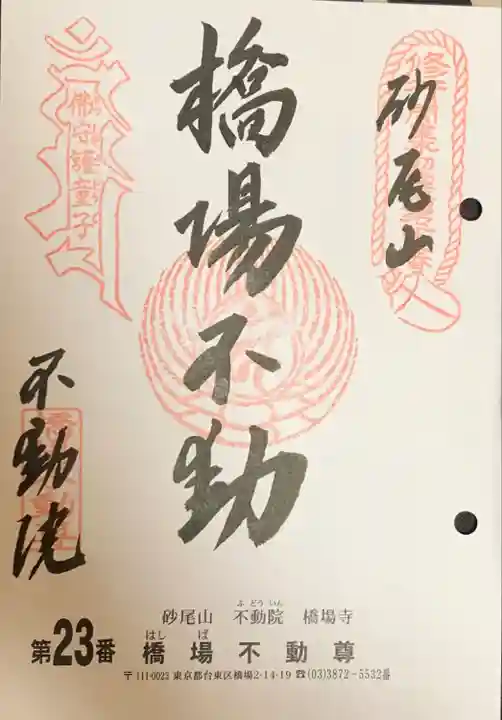 砂尾山
橋場不動
不動院
佛守護童子
砂尾山 不動院 橋場寺
ふどういん
第23番 橋場不動尊
はし ば
〒111-0023 東京都台東区橋場2-14-19 ☎(03)3872-5532番